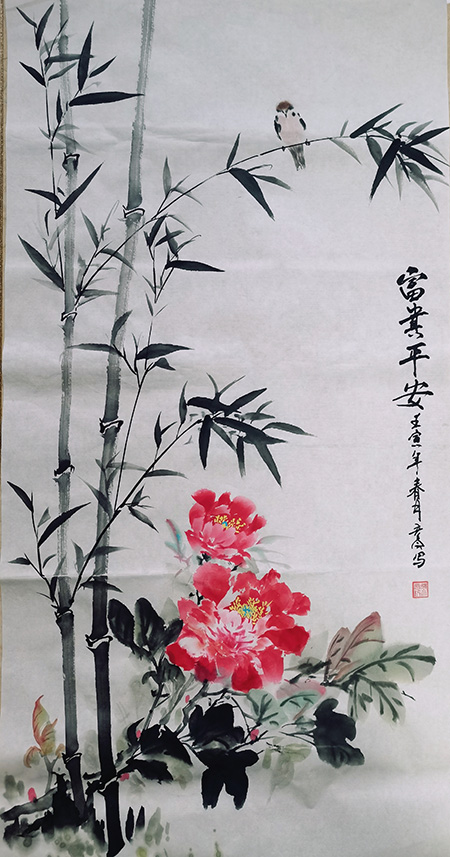 富贵平安
壬寅年春月
写